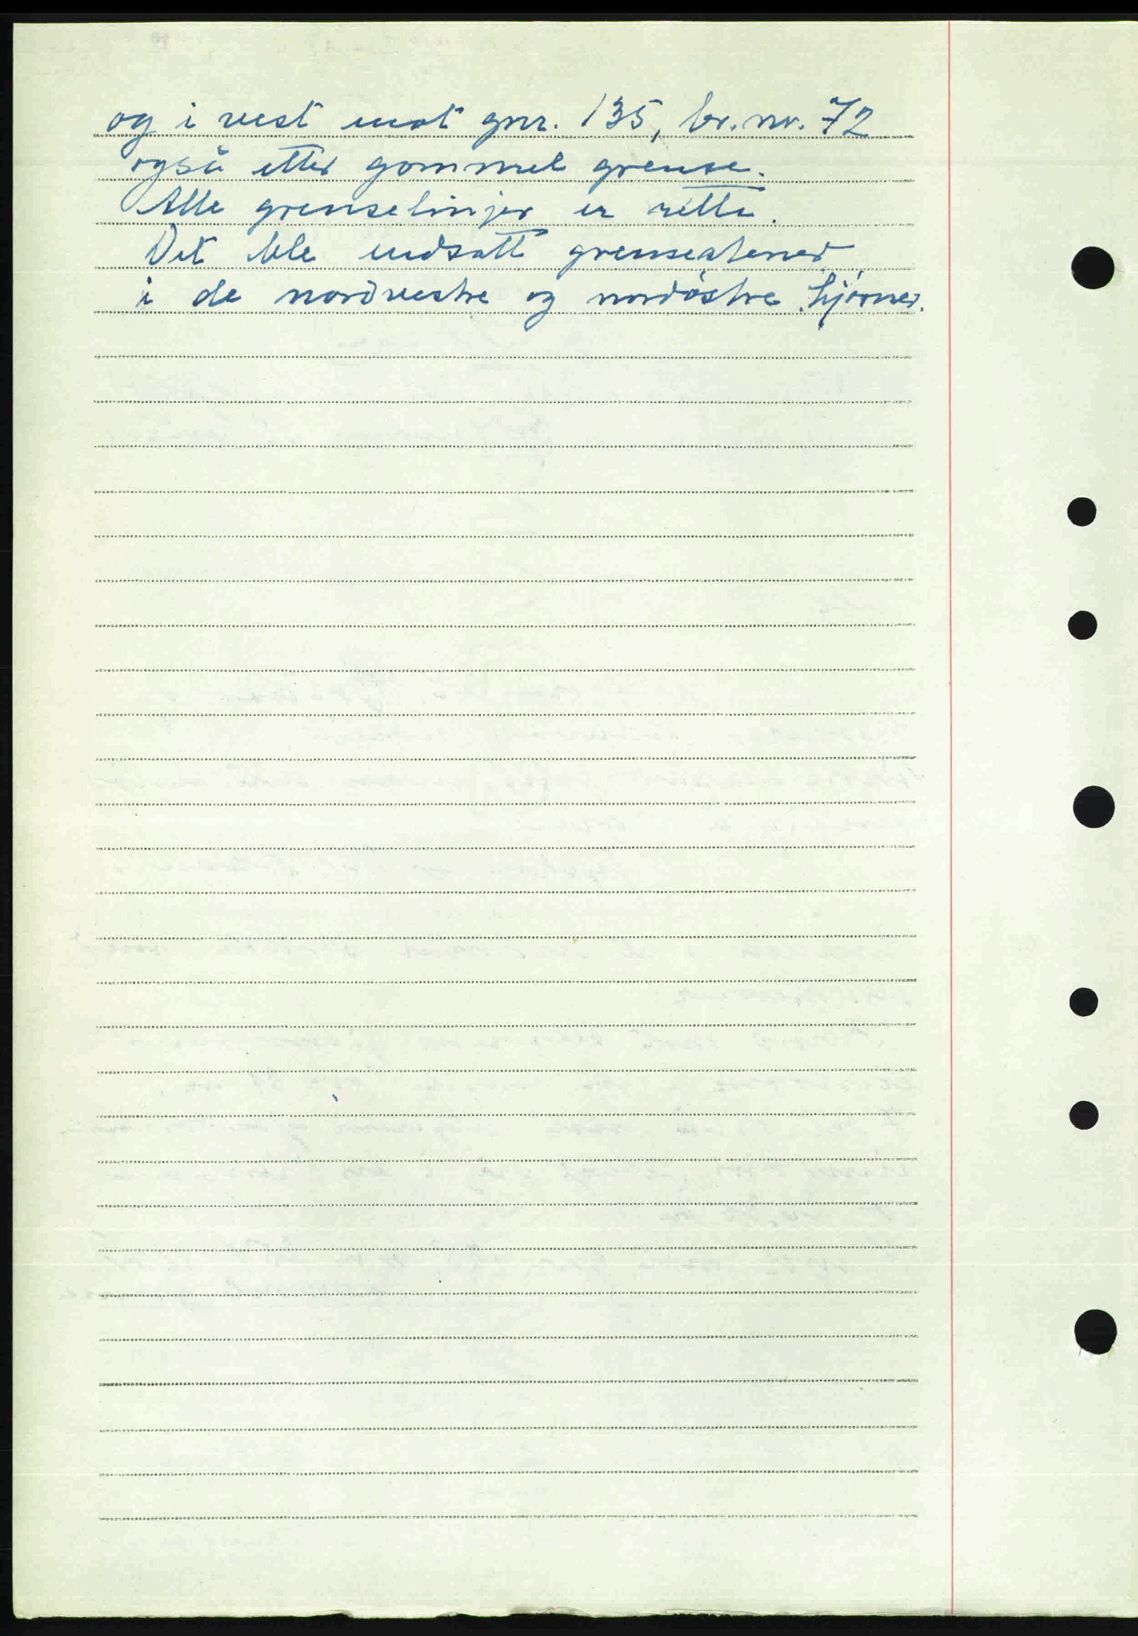 og i vest mot gnr. 135, br. nr. 72
også etter gammel grense.
Alle grenselinjer er rette.
Det ble nedsatt grensestener
i de nordvestre og nordøstre hjørner.